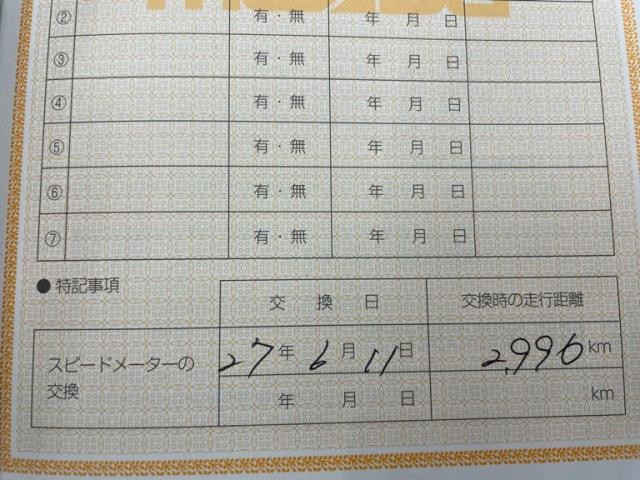 ② 有・無 年 月 日
③ 有・無 年 月 日
④ 有・無 年 月 日
⑤ 有・無 年 月 日
⑥ 有・無 年 月 日
⑦ 有・無 年 月 日
● 特記事項
交換日 交換時の走行距離
スピードメーターの
交換
27年 6月 11日 2,996 km
年 月 日 km